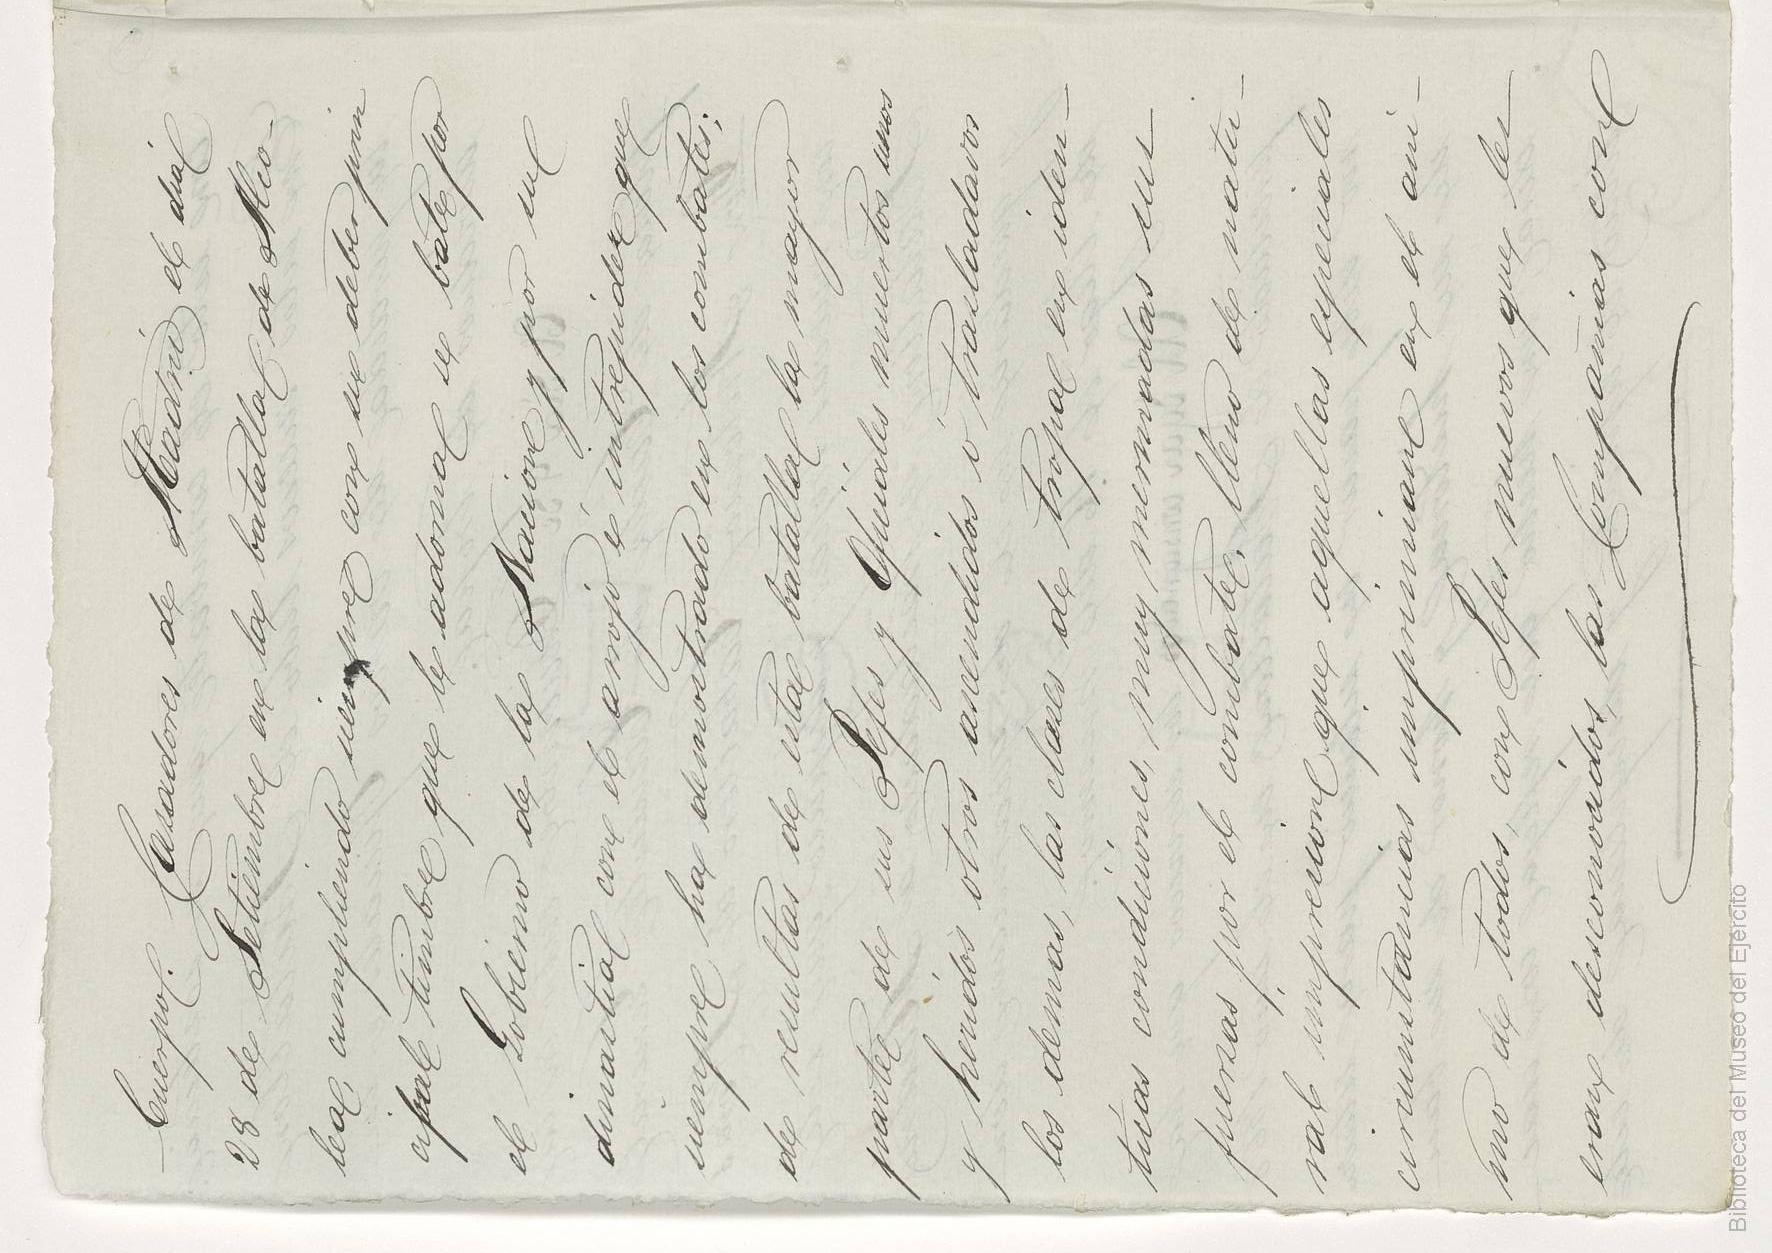 Cuerpo. Cazadores de Madrid el dia
28 de Setiembre en la batalla de Alco-
lea, cumpliendo siempre con su deber prin
cipal timbre que le adorna se bate por
el Gobierno de la Nacion y por su
dinastia con el arrojo é intrepidez que
siempre ha demostrado en los combates;
de resultas de esta batalla la mayor
parte de sus Jefes y Oficiales muertos unos
y heridos otros ascendidos ó trasladados
los demas, las clases de tropa en iden-
ticas condiciones, muy mermadas sus
fuerzas por el combate, lleno de natu-
ral impresion que aquellas especiales
circunstancias imprimian en el áni-
mo de todos, con Jefes nuevos que les
eran desconocidos, las Compañias con
Biblioteca del Museo del Ejército